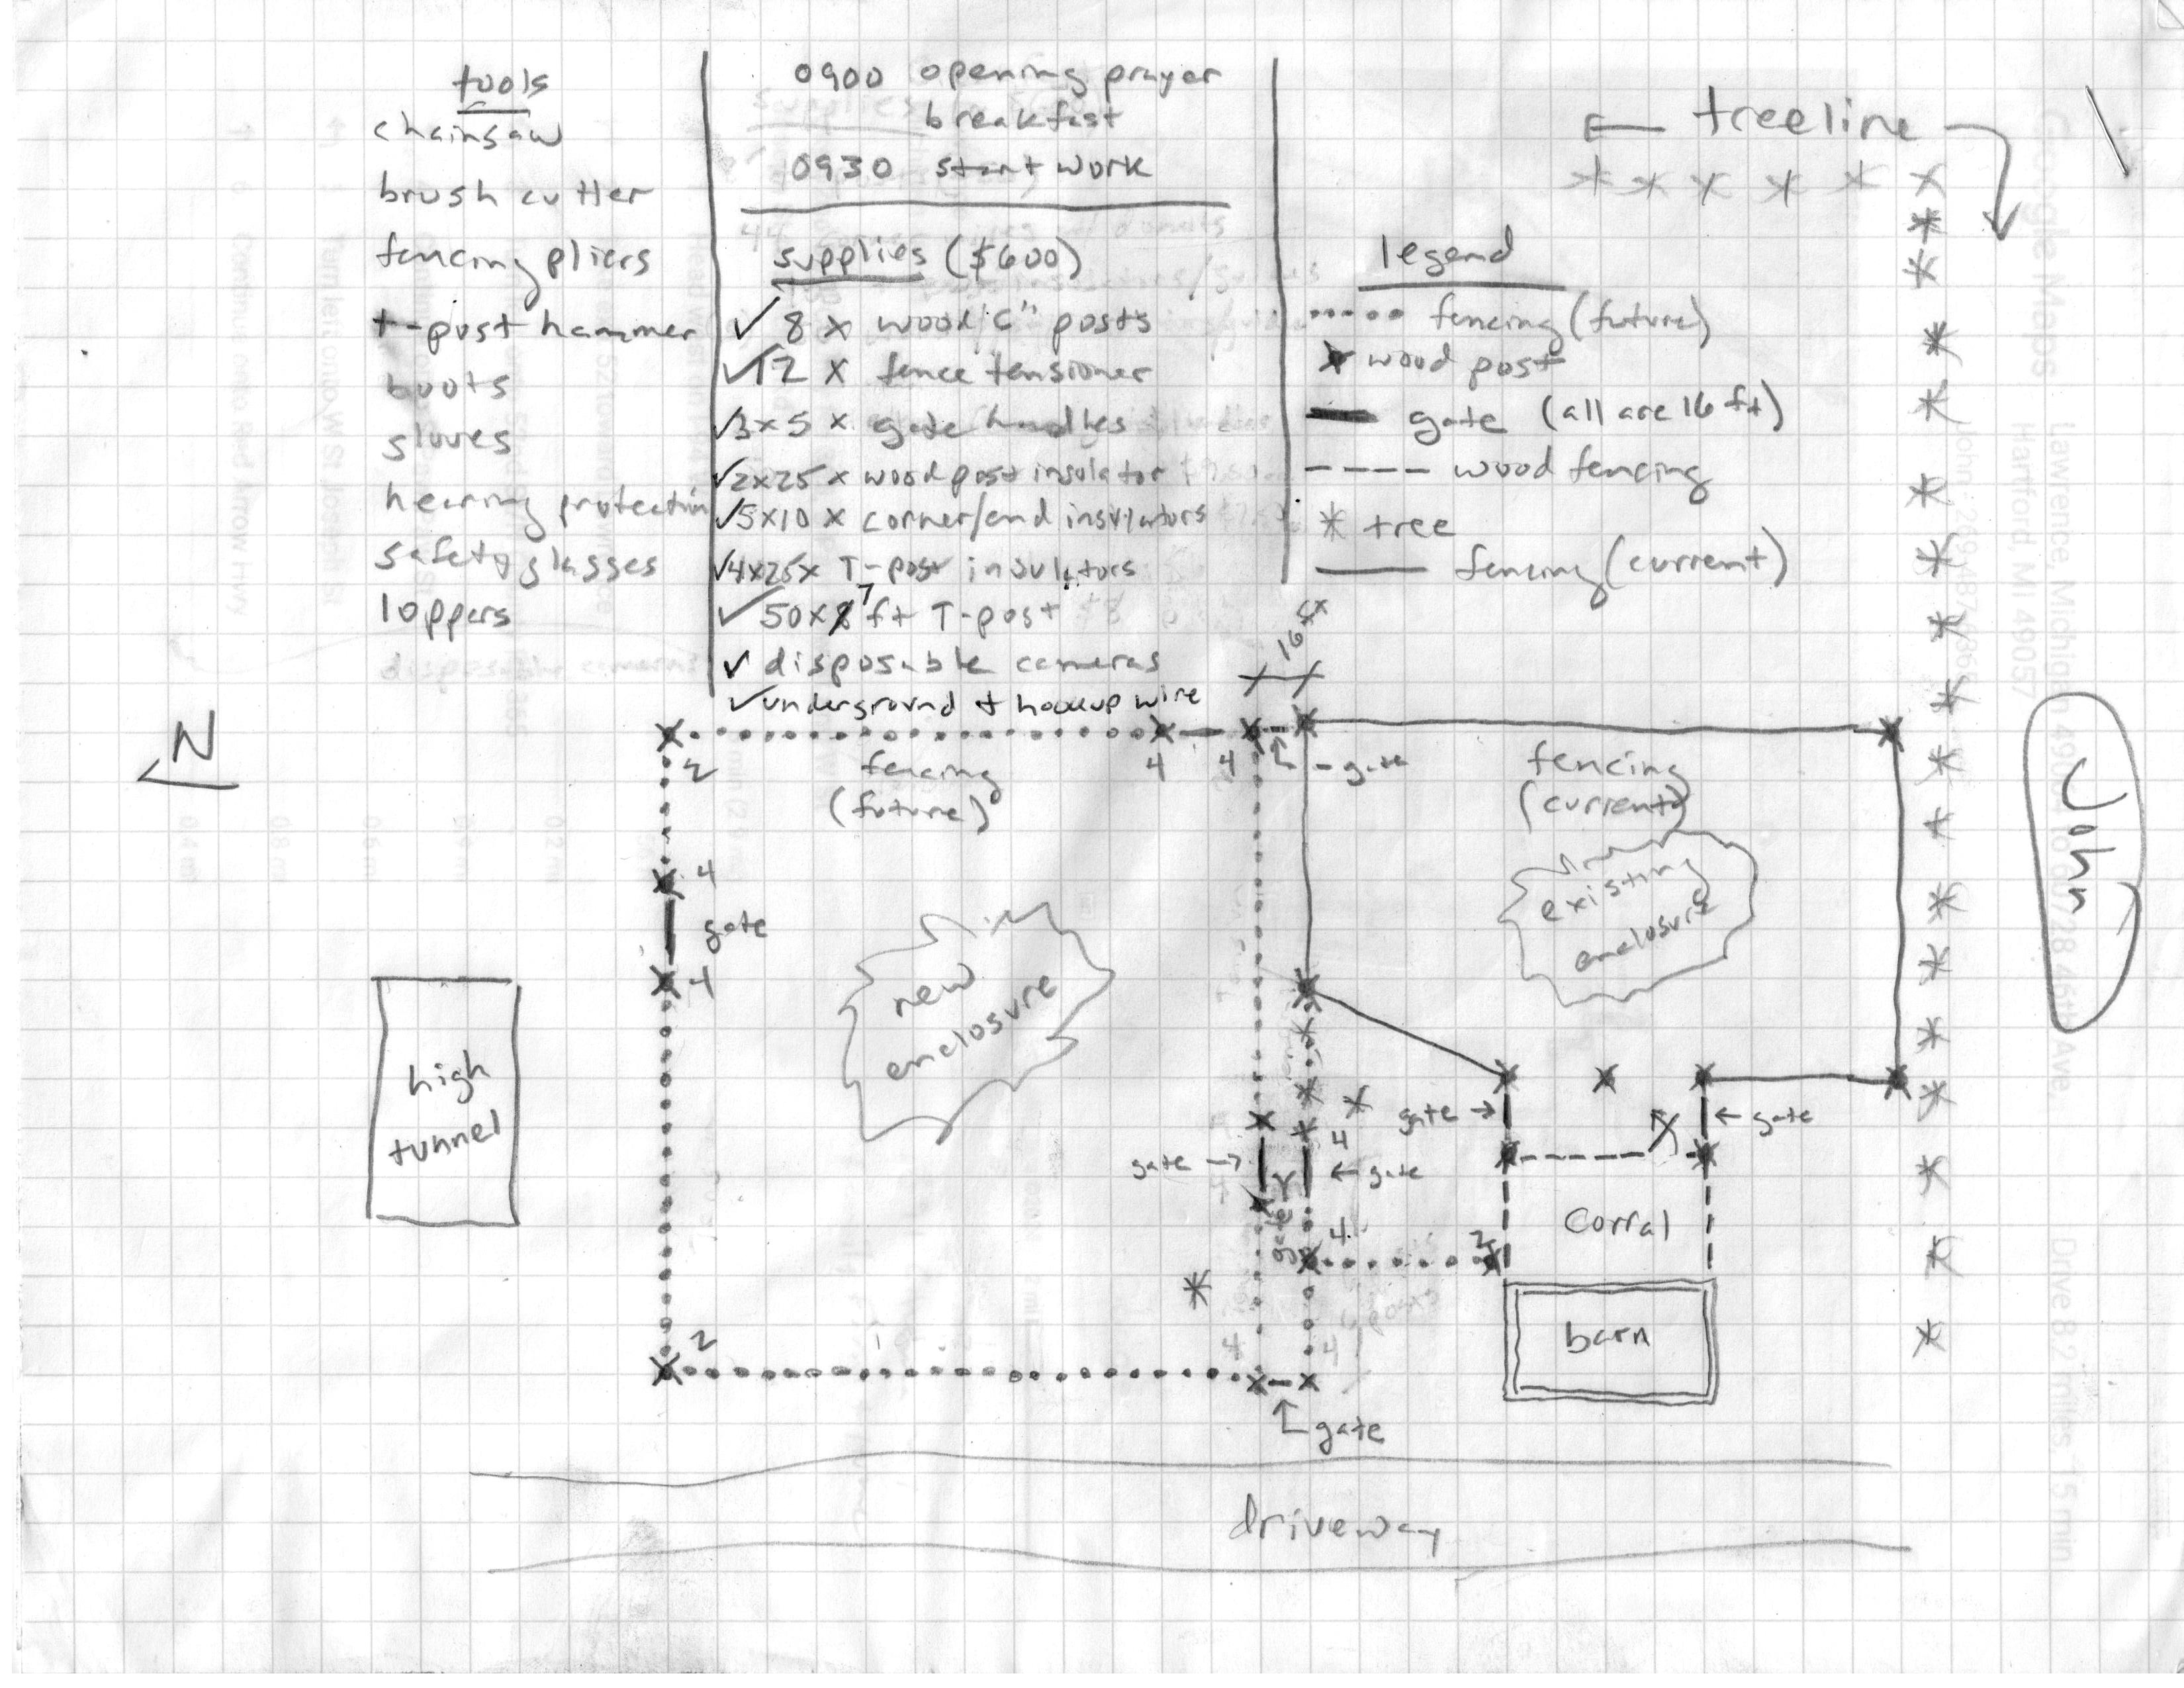 tools
chainsaw
brush cutter
fencing pliers
t-post hammer
boots
gloves
hearing protection
safety glasses
loppers
disposable cameras
0900 opening prayer
breakfast
0930 start work
supplies ($600)
✓ 8 x wood 6" posts
✓ 12 x fence tensioner
✓ 3x5 x gate handles
✓ 2x25 x wood post insulator
✓ 5x10 x corner/end insulators
✓ 4x25 x T-post insulators
✓ 50 x 7 ft T-post
✓ disposable cameras
✓ underground + hookup wire
← treeline
legend
fencing (future)
x wood post
gate (all are 16 ft)
wood fencing
* tree
fencing (current)
16 ft
N
2
4
4
gate
fencing
(future)
fencing
(current)
4
gate
4
new
enclosure
existing
enclosure
high
tunnel
gate →
gate →
← gate
4
← gate
gate
4
2
corral
barn
2
4
4
gate
driveway
John
Google Maps
Lawrence, Michigan 49
Hartford, MI 49057
Drive 8.2 miles, 15 min